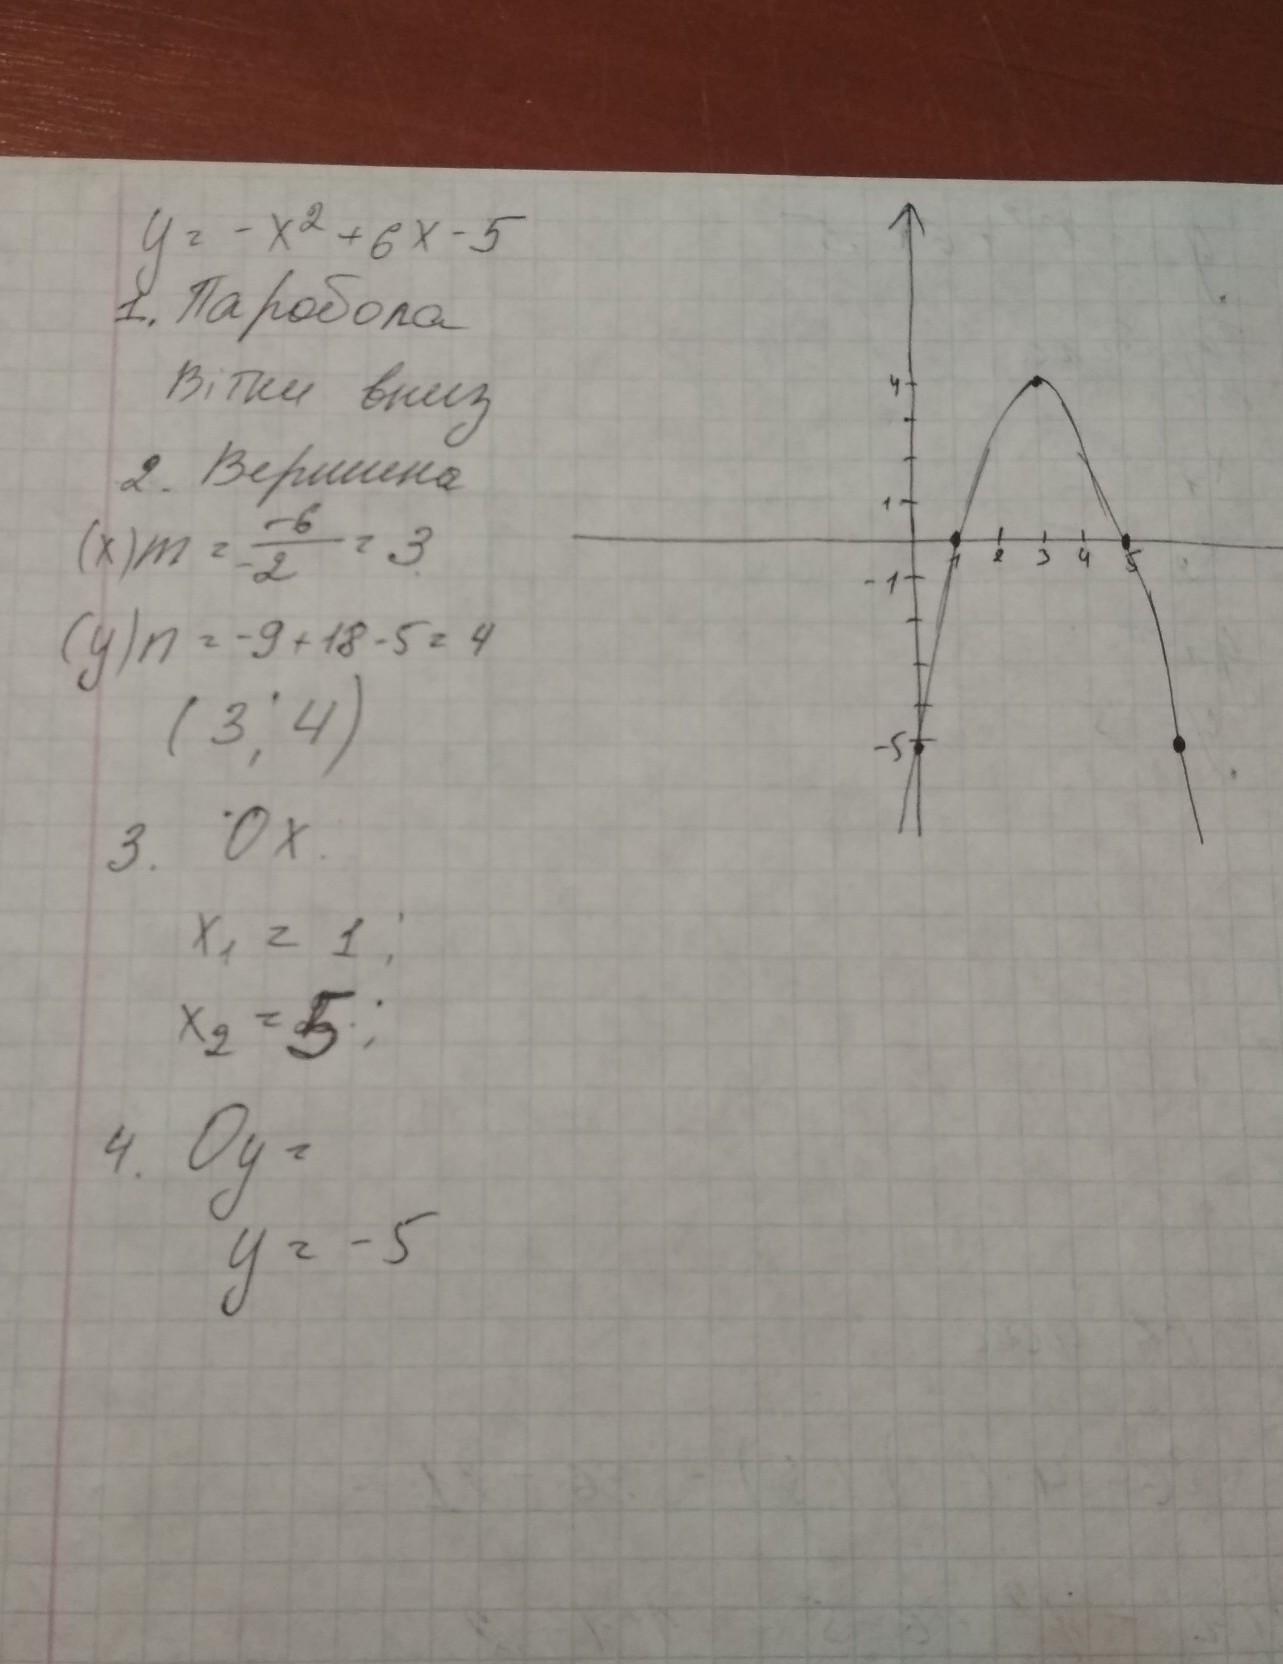 y = -x² + 6x - 5
1. Паробола
Вітки вниз
2. Вершина
(x) m = -6/-2 = 3
(y) n = -9 + 18 - 5 = 4
(3; 4)
3. Ox.
x₁ = 1;
x₂ = 5;
4. Oy =
y = -5
4
1
1 2 3 4 5
-1
-5